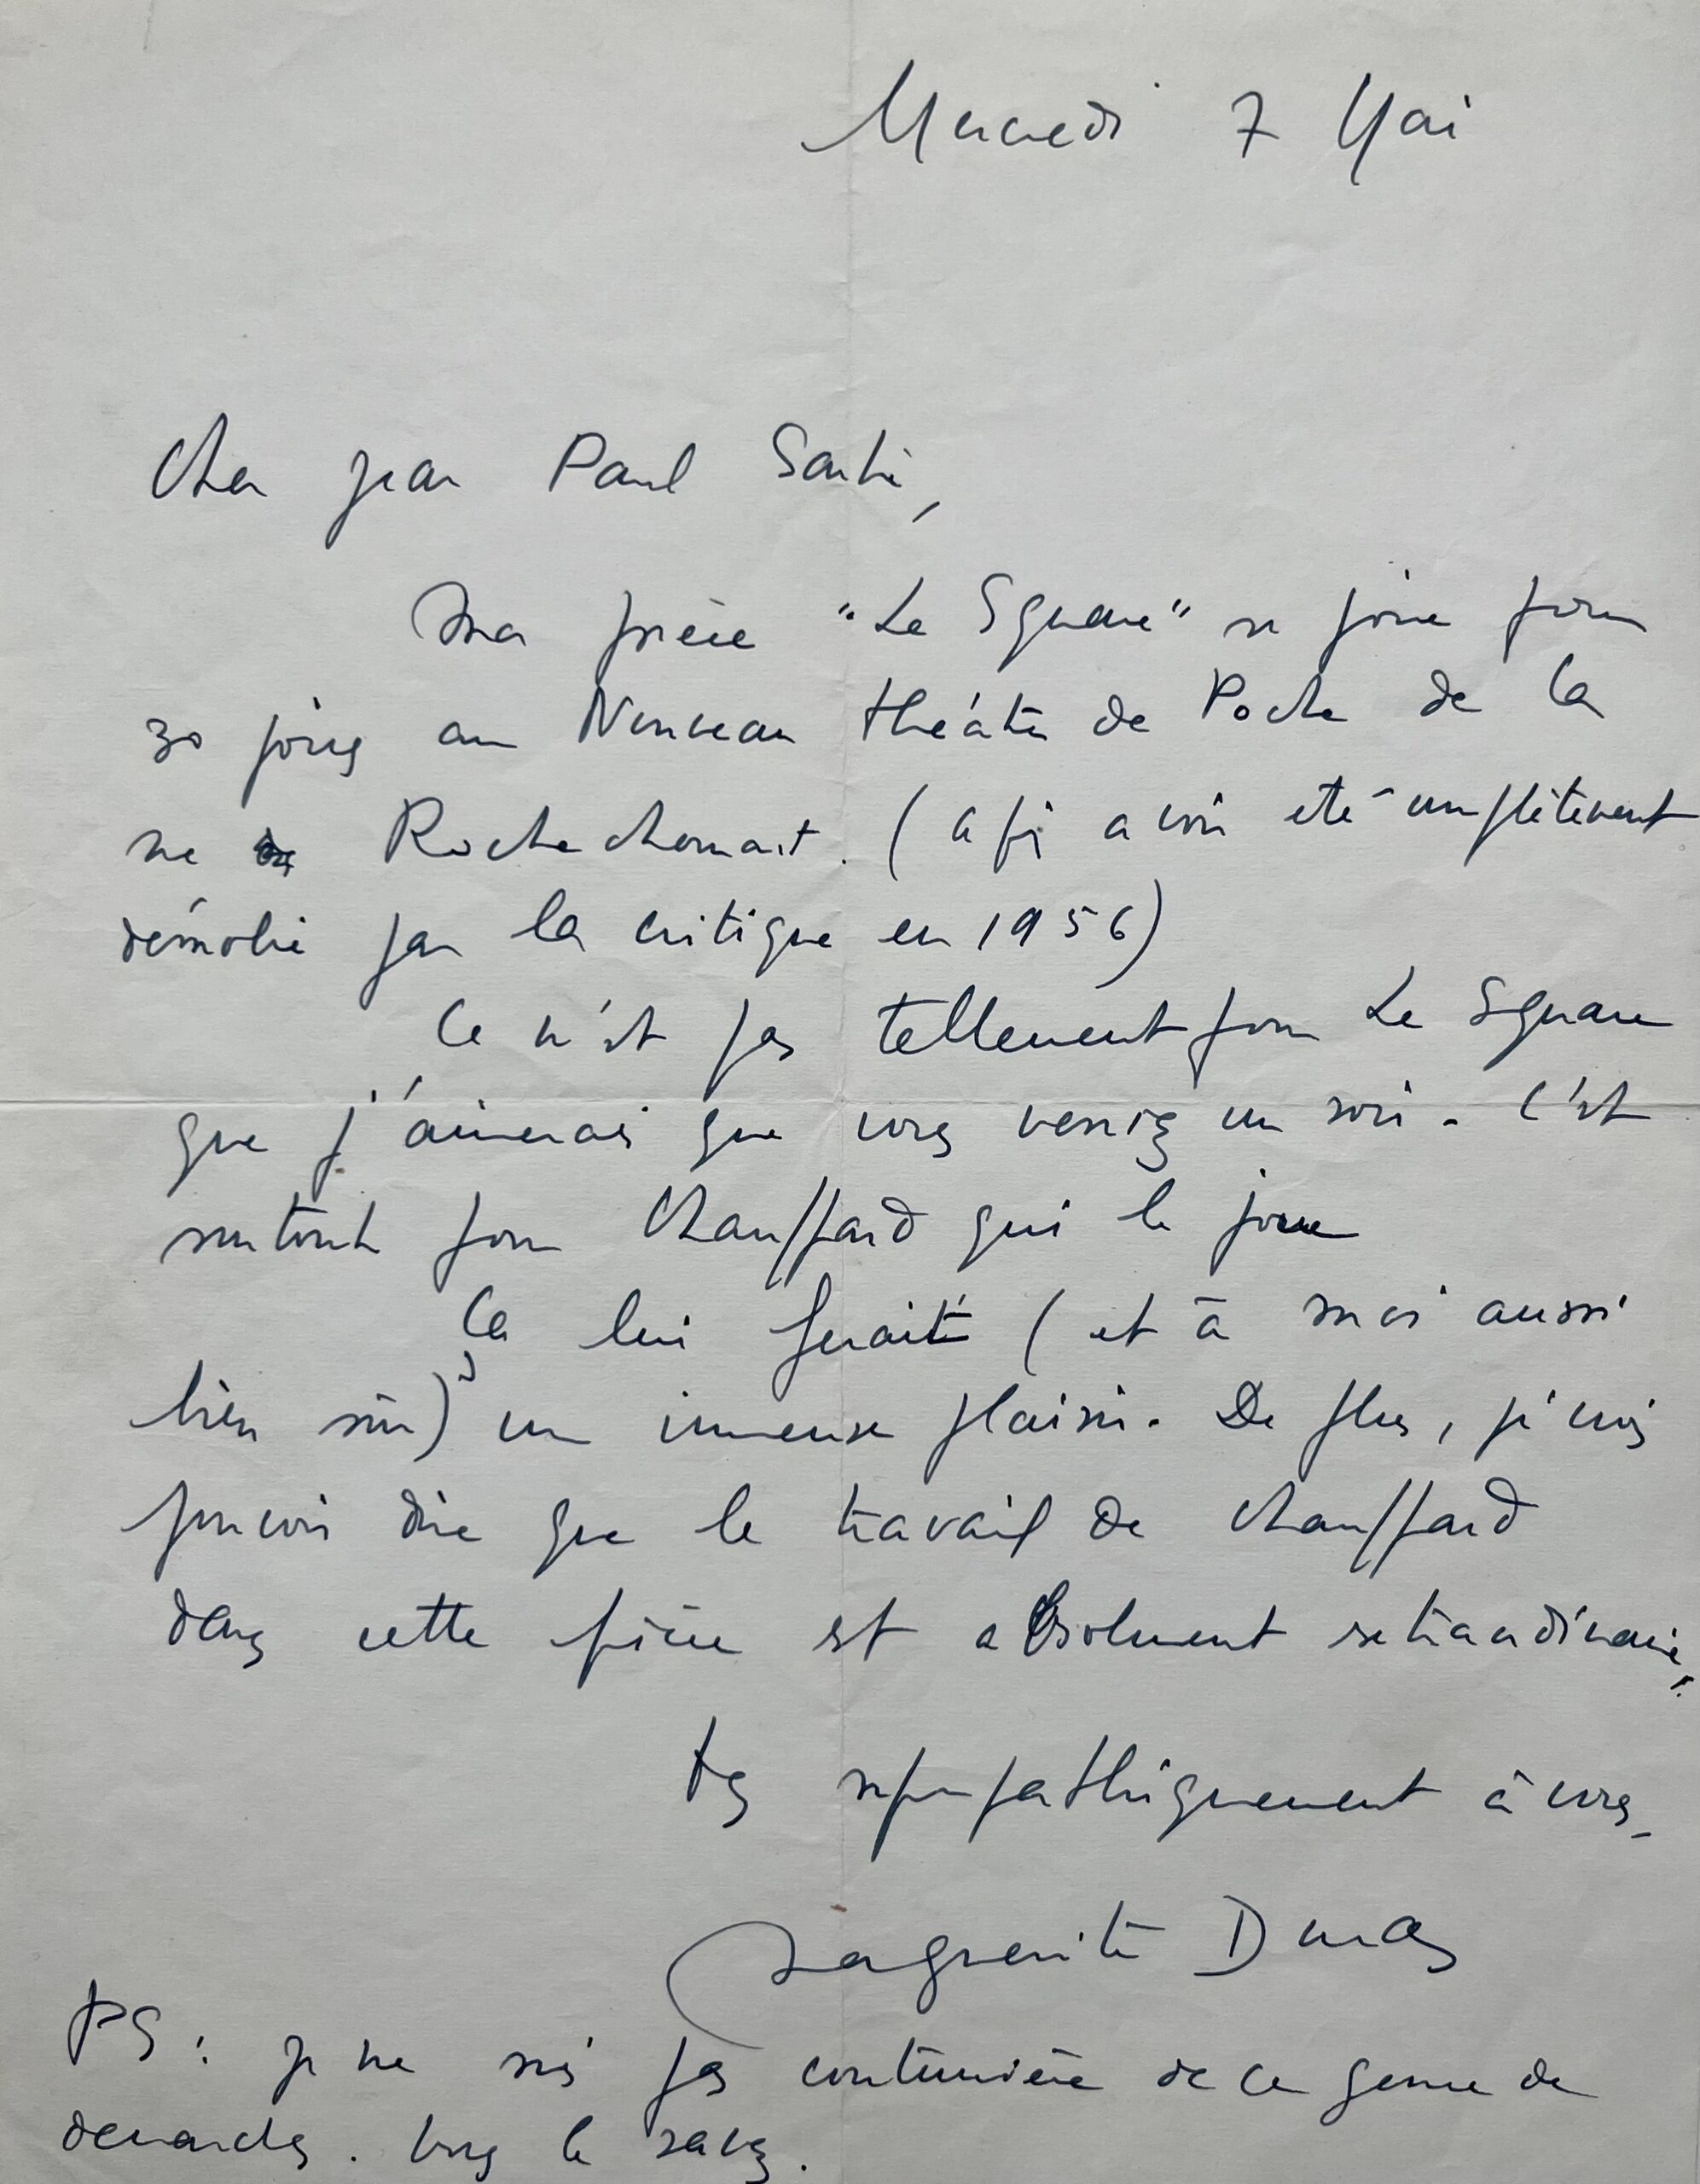 Mercredi 7 Mai
Cher Jean Paul Sartre,
Ma pièce "Le Square" se joue pour
30 jours au Nouveau théâtre de Poche de la
rue Rochechouart. (après avoir été complètement
démolie par la critique en 1956)
Ce n'est pas tellement pour Le Square
que j'aimerais que vous veniez un soir. C'est
surtout pour Chauffard qui le joue
Ça lui ferait (et à moi aussi
bien sûr) un immense plaisir. De plus, je crois
pouvoir dire que le travail de Chauffard
dans cette pièce est absolument extraordinaire.
très sympathiquement à vous,
Marguerite Duras
PS : je ne suis pas coutumière de ce genre de
demandes. Vous le savez.